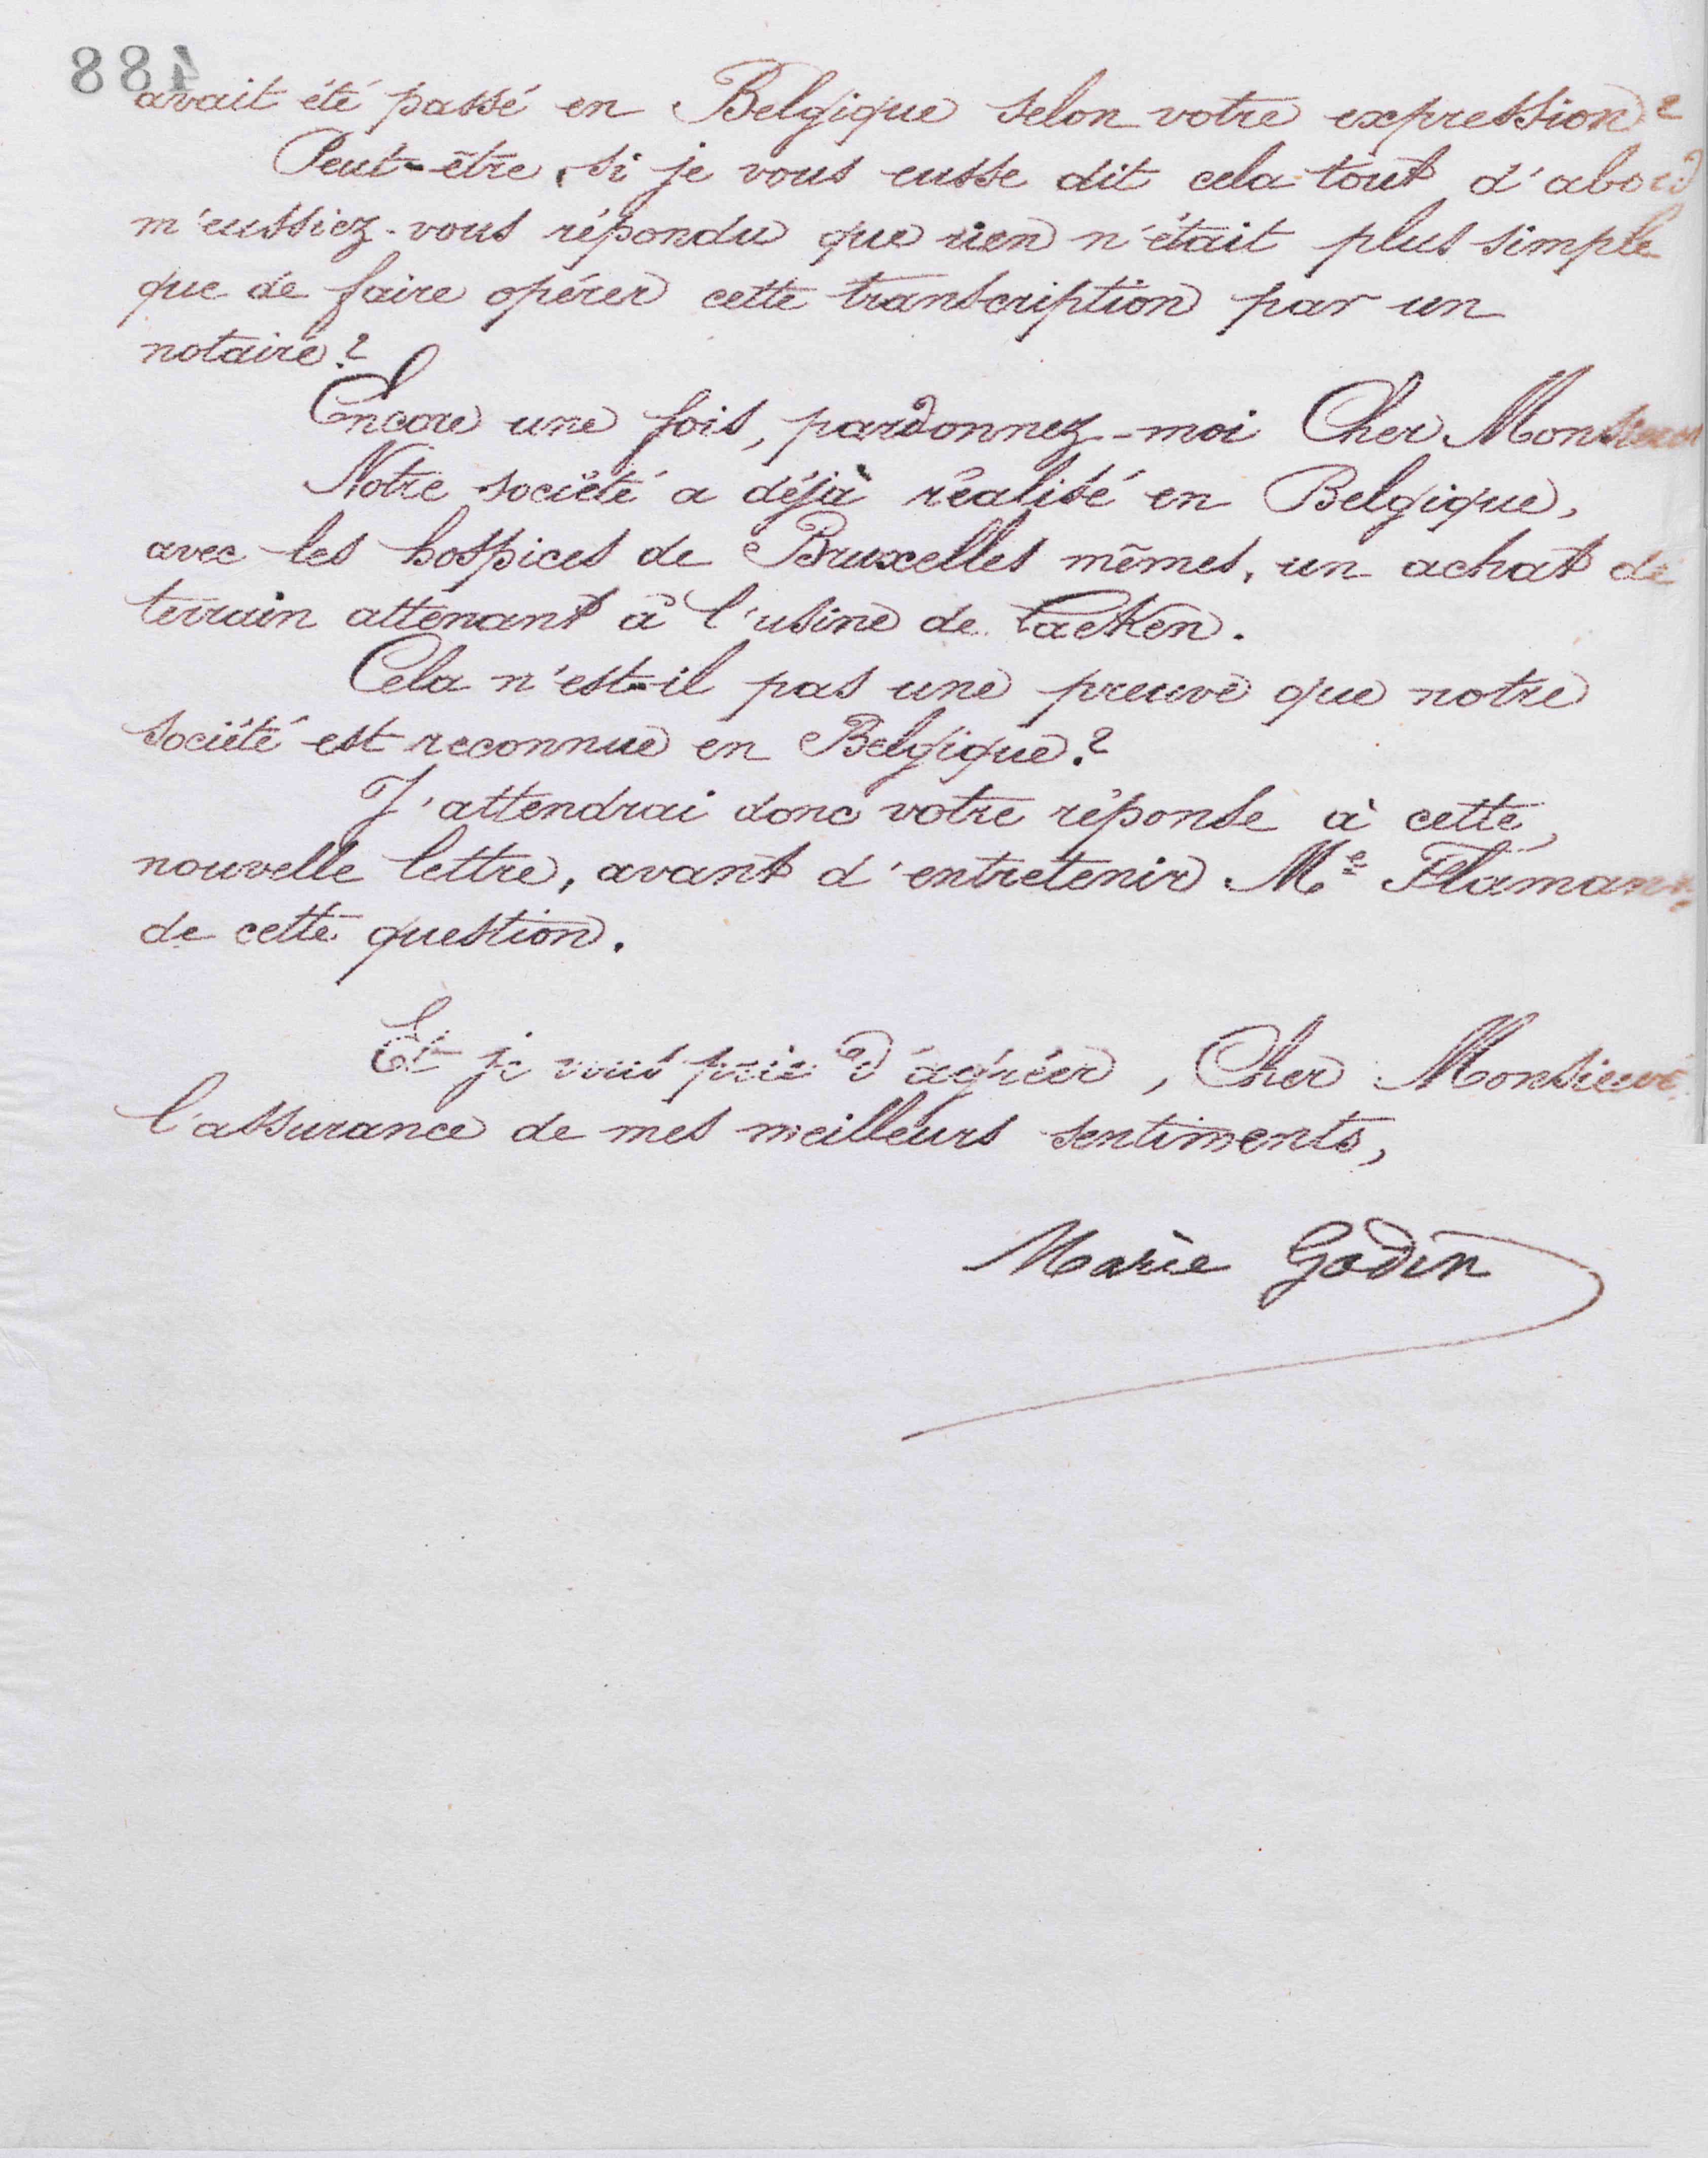 488
avait été passé en Belgique selon votre expression?
Peut-être, si je vous eusse dit cela tout d'abord
m'eussiez-vous répondu que rien n'était plus simple
que de faire opérer cette transcription par un
notaire?
Encore une fois, pardonnez-moi Cher Monsieur
Notre société a déjà réalisé en Belgique,
avec les hospices de Bruxelles mêmes, un achat de
terrain attenant à l'usine de Laeken.
Cela n'est-il pas une preuve que notre
société est reconnue en Belgique?
J'attendrai donc votre réponse à cette
nouvelle lettre, avant d'entretenir Me Flamant
de cette question.
Et je vous prie d'agréer, Cher Monsieur,
l'assurance de mes meilleurs sentiments,
Marie Godin